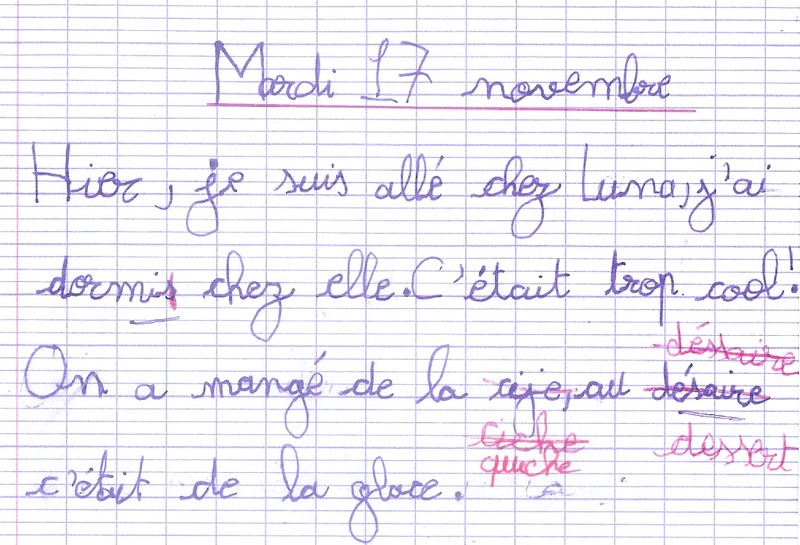 Mardi 17 novembre
Hier, je suis allé chez Luna, j'ai
dormis chez elle. C'était trop cool!
déssaire
On a mangé de la cije, au désaire
ciche dessert
quiche
c'était de la glace.